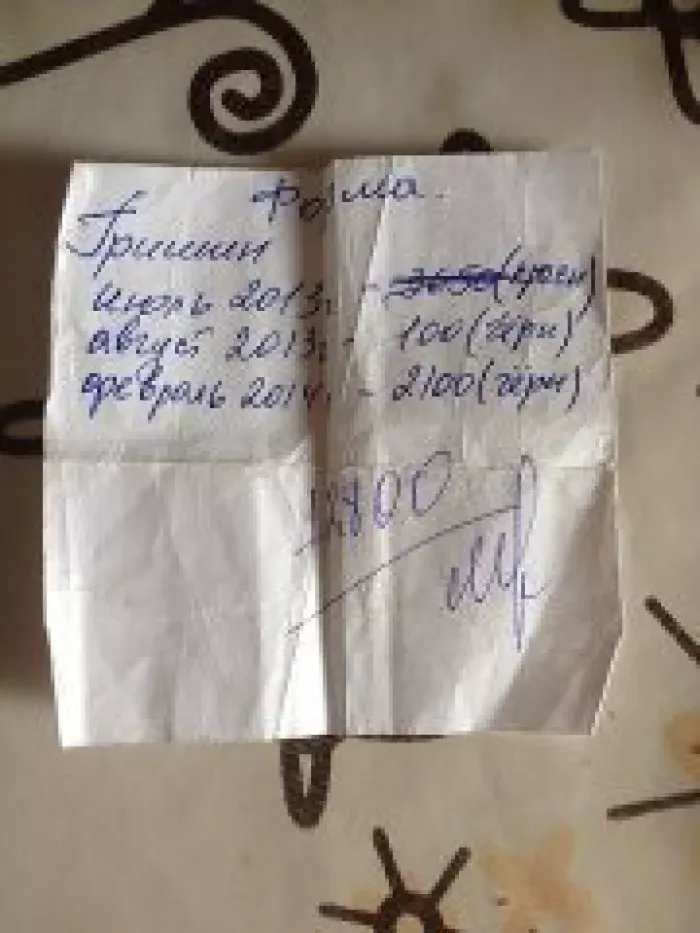 Форма.
Гришин
июль 2013г. - 3650 (красн)
август 2013г. - 100 (чёрн)
февраль 2014г. - 2100 (чёрн)
2800